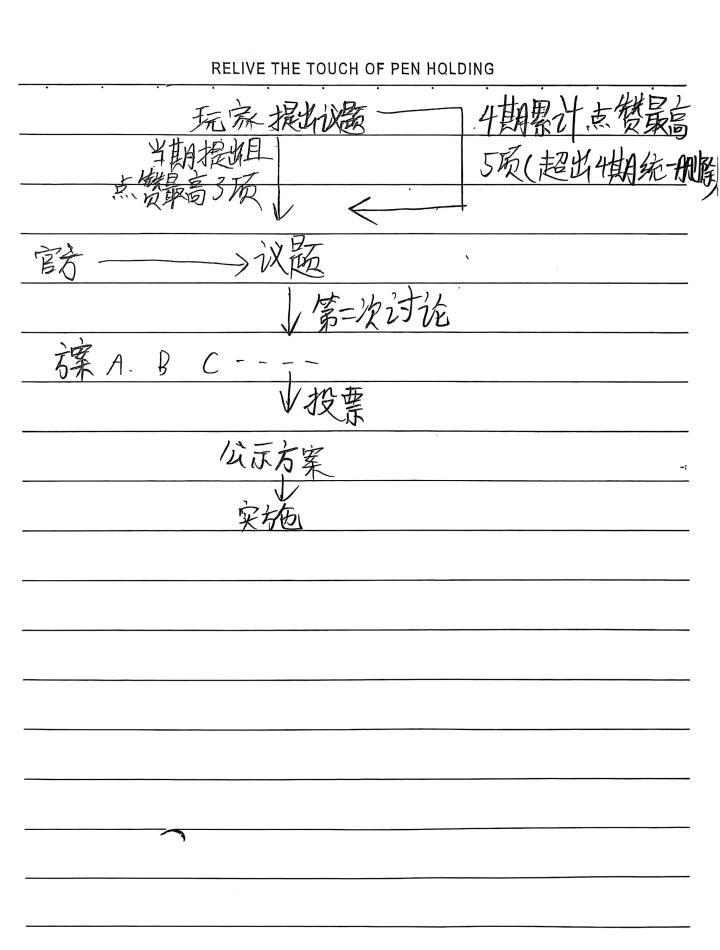 RELIVE THE TOUCH OF PEN HOLDING
玩家提出议题
4期累计点赞最高
5项(超出4期统一删除)
当期提出且
点赞最高3项
官方
议题
第二次讨论
方案 A. B C ----
投票
公示方案
实施